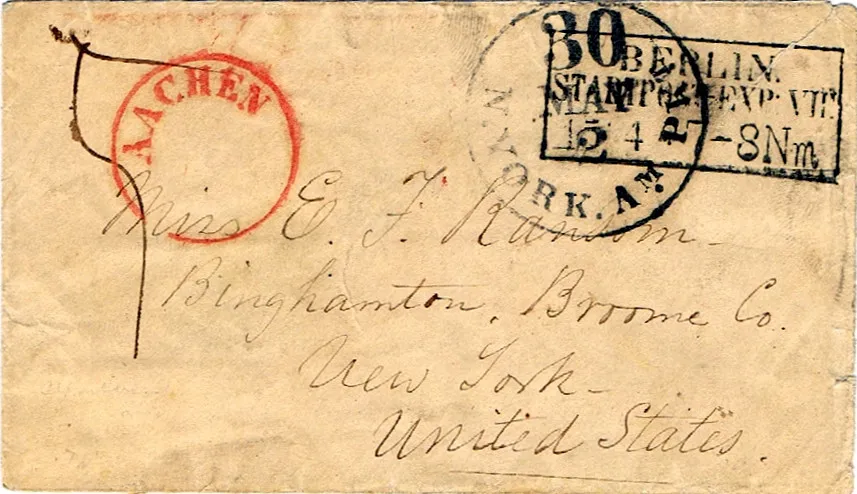 AACHEN
30
N. YORK. AM. PKT
MAY
2
BERLIN
STADTPOST-EXP: VII
4 -8Nm
Miss E. F. Ransom
Binghamton, Broome Co.
New York
United States.